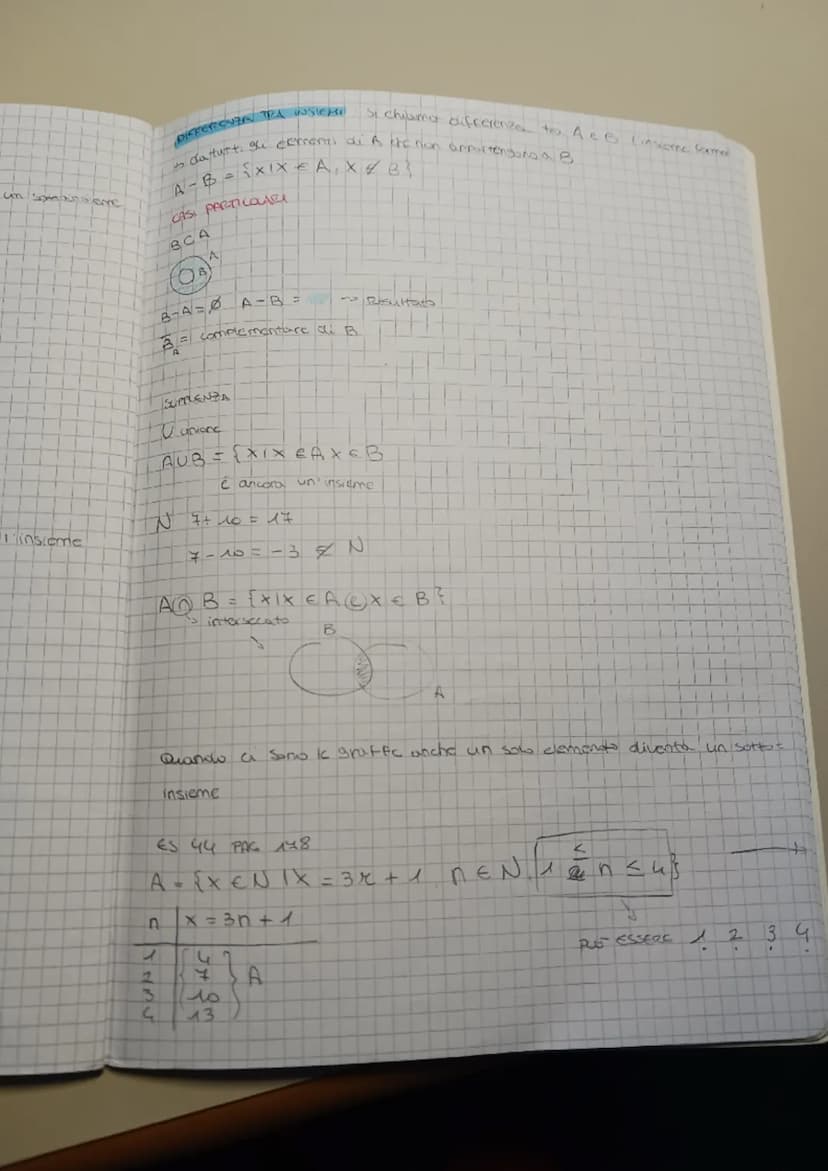 un sottoinsieme
l'insieme
DIFFERENZA TRA INSIEMI Si chiama differenza tra A e B l'insieme format
↳ da tutti gli elementi di A che non appartengono a B
A - B = {x|x ∈ A, x ∉ B}
CASI PARTICOLARI
B ⊂ A
A
B
B-A=∅ A-B = → Risultato
B̄_A = complementare di B
U unione
A∪B = {x|x ∈ A x ∈ B
è ancora un'insieme
N 7+10=17
7-10=-3 ∉ N
A∩B = {x|x ∈ A e x ∈ B}
↳ intersecato
B
A
Quando ci sono le graffe anche un solo elemento diventa un sotto=
insieme
ES 44 PAG 178
A = {x ∈ N | x = 3n + 1 n ∈ N, 1 ≤ n ≤ 4}
n | x = 3n + 1
PUÒ ESSERE 1 2 3 4
1 | 4
2 | 7 } A
3 | 10
4 | 13